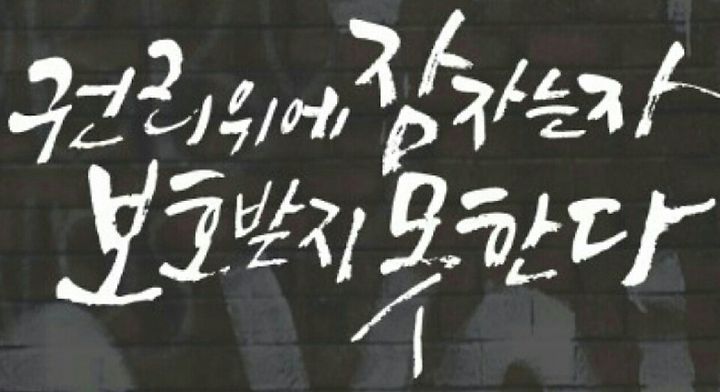 권리위에 잠자는자
보호받지 못한다